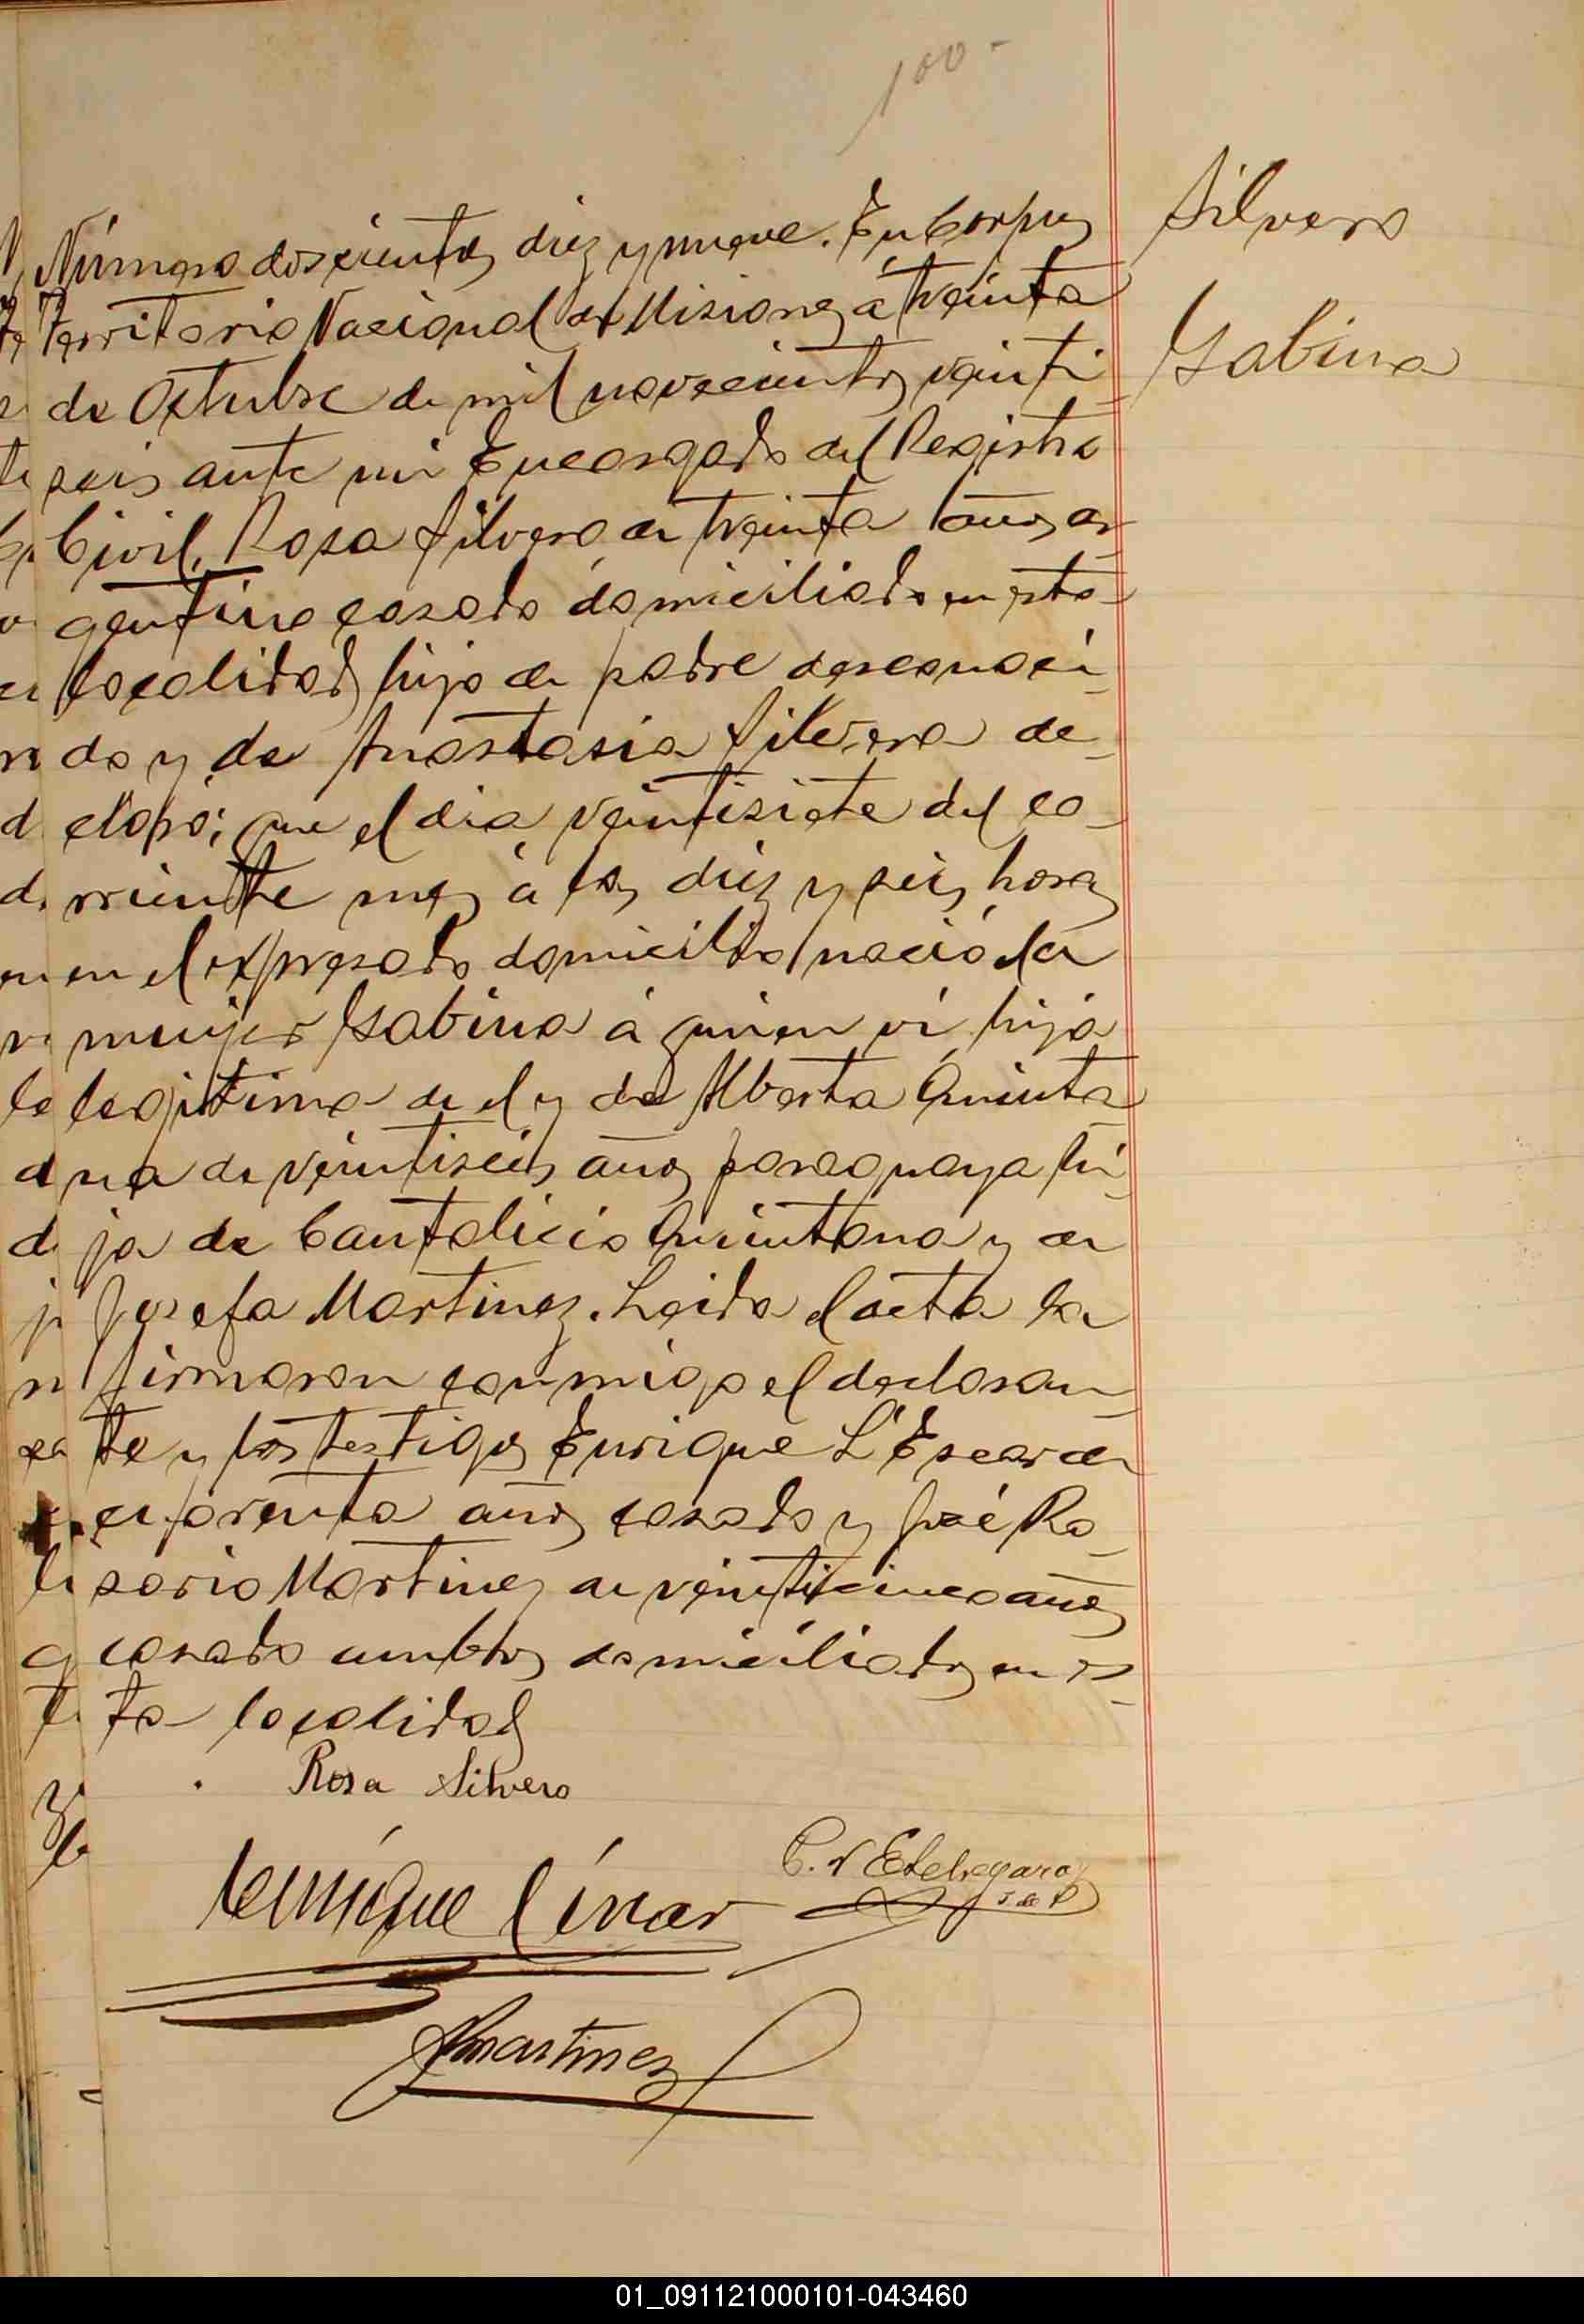 100-
Silvero
Ysabina
Número doscientos diez y nueve. En Corpus
Territorio Nacional de Misiones á treinta
de Octubre de mil novecientos veinti
seis ante mi Encargado del Registro
Civil, Rosa Silvero de treinta años ar_
gentino casado domiciliado en esta
localidad hijo de padre desconoci_
do y de Anastasia Silvera de_
claró; que el dia veintisiete del co_
rriente mes á las diez y seis horas
en el expresado domicilio nació la
mujer Ysabina á quien ví hija
legitima de el y de Alberta Quinta
na de veintiseis años paraguaya hi_
ja de Cantalicio Quintana y de
Josefa Martinez. Leida el acta la
firmaron conmigo el declaran_
te y los testigos Enrique L'Escar de
cuarenta años casado y José Ro_
sario Martinez de veinticinco años
casado ambos domiciliados en es_
ta localidad
Rosa Silvero
Enrique
C. Etchegaray
J. de P
Martinez
01_091121000101-043460